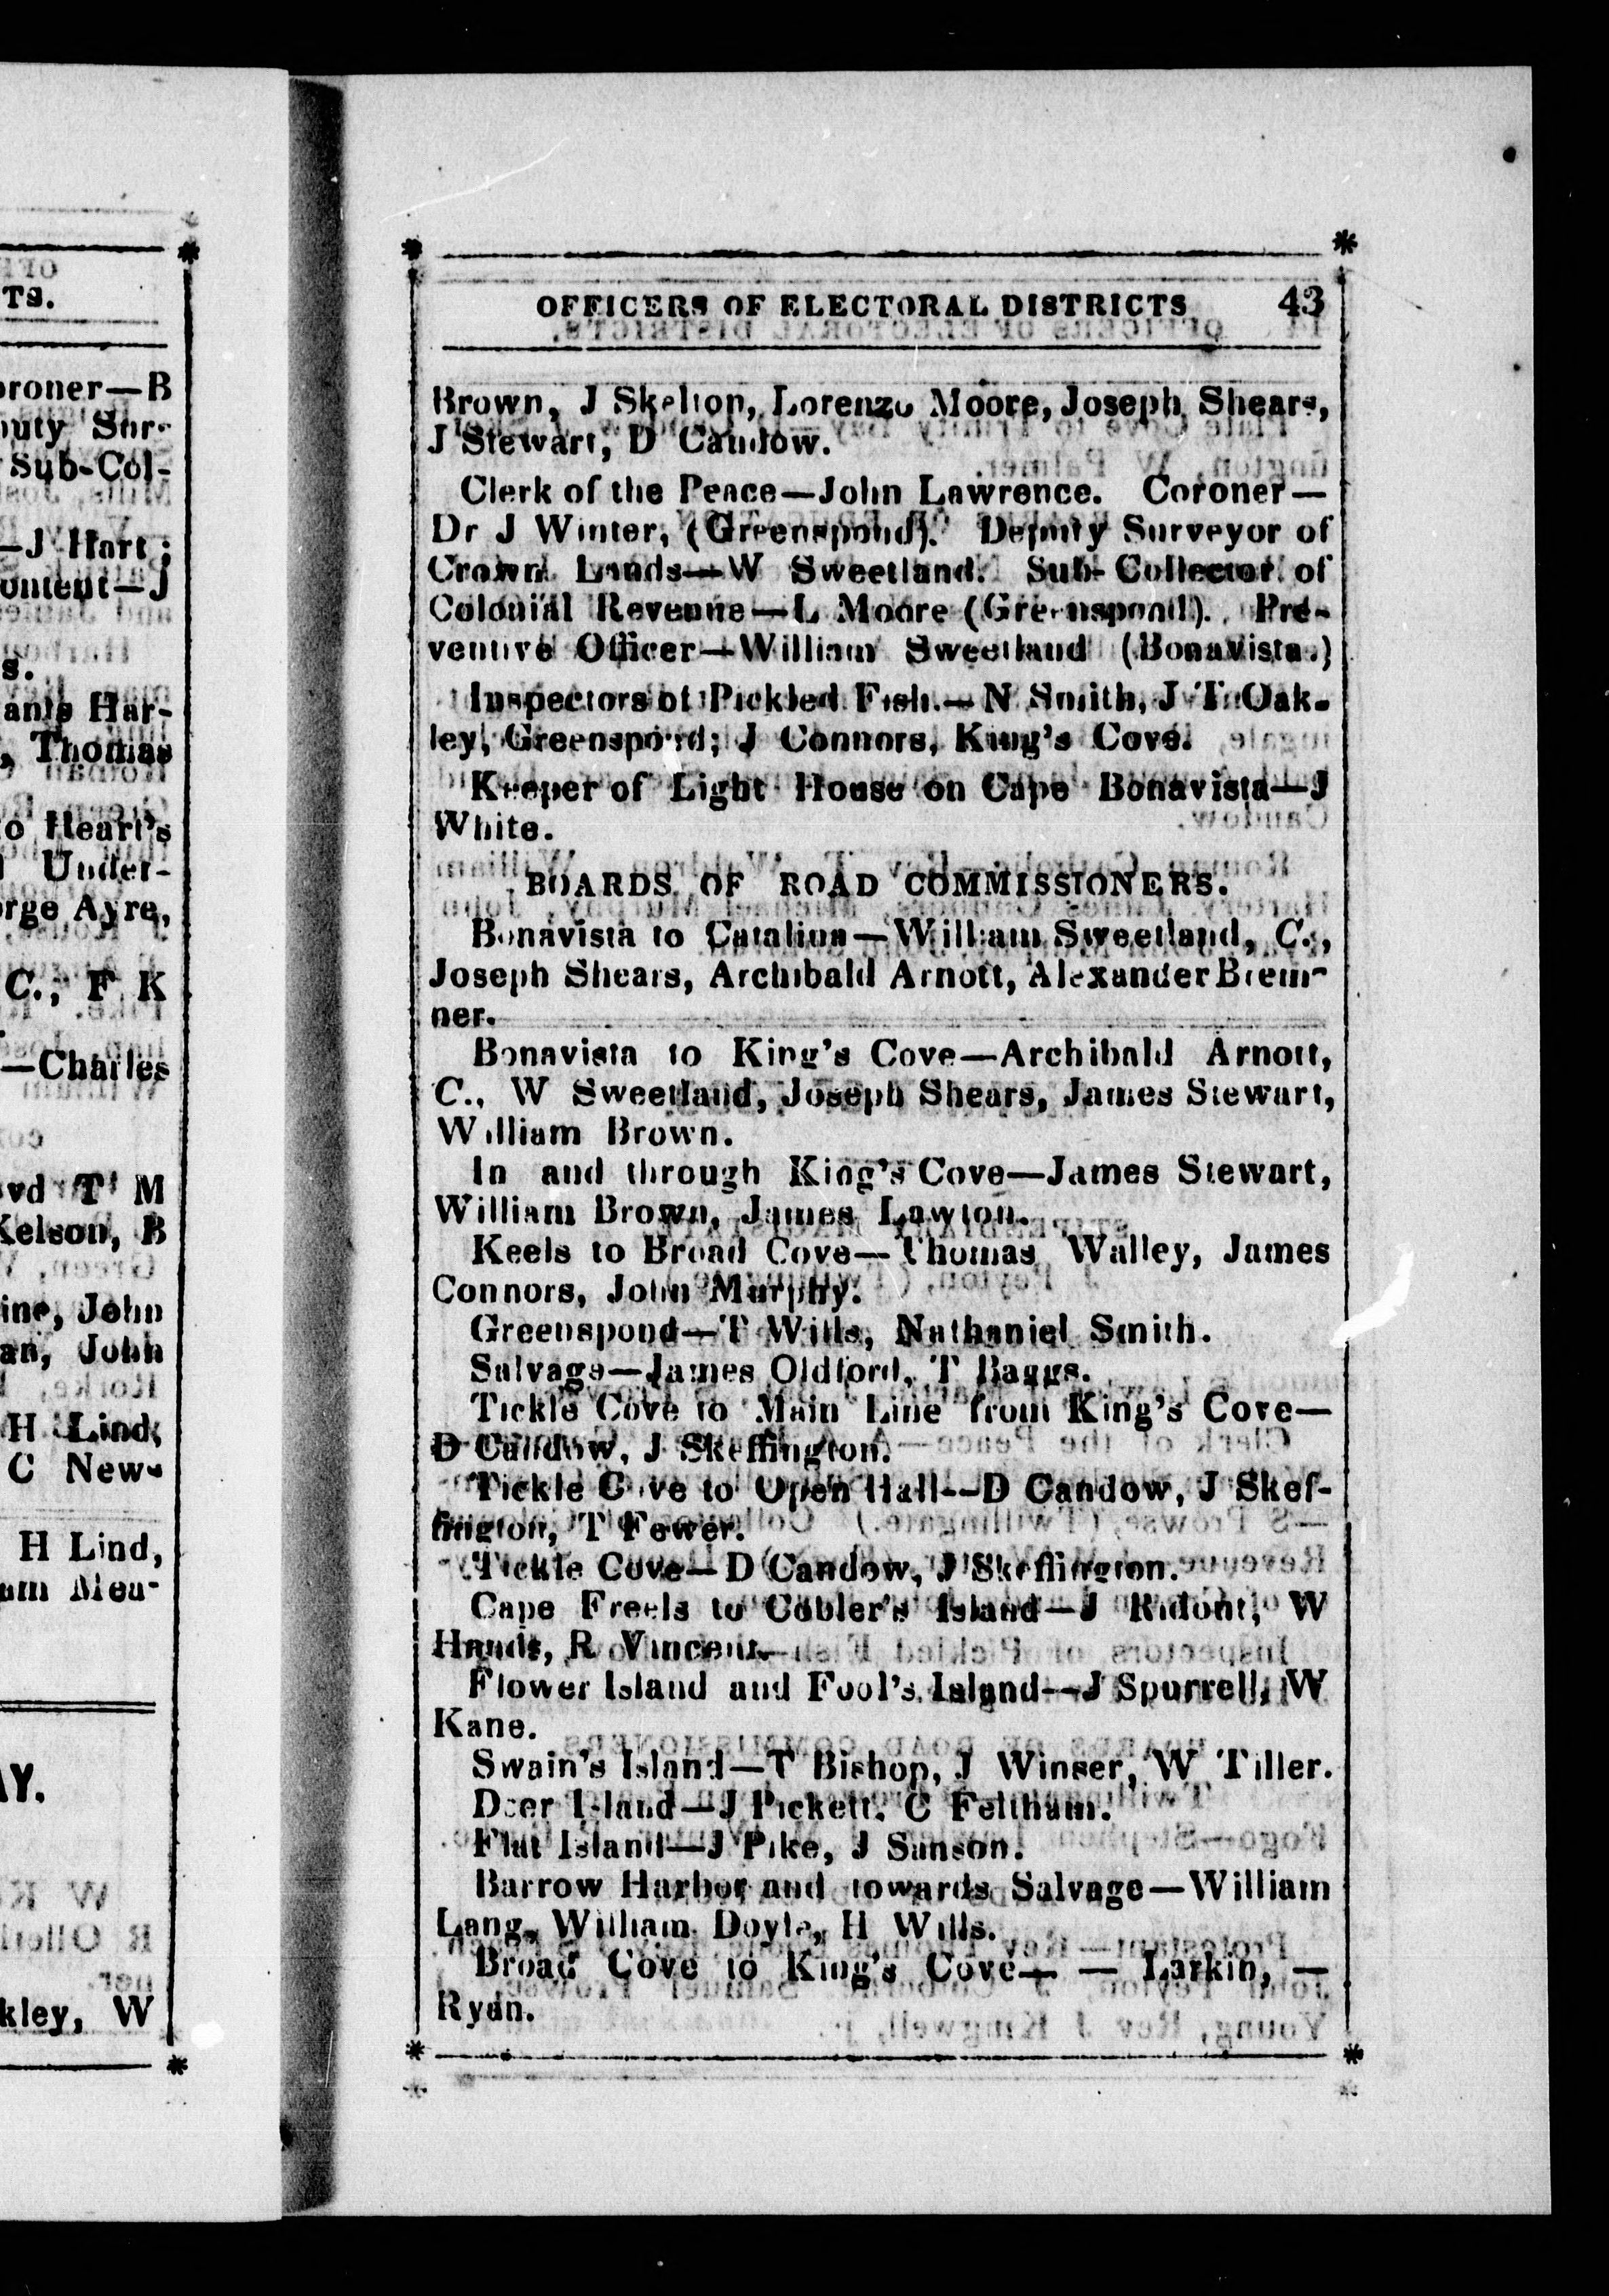 TS.
oroner—B
puty Sur-
Sub-Col-
—J Hart;
ontent—J
s.
ants Har-
, Thomas
o Heart's
Under-
rge Ayre,
C., F K
—Charles
vd T M
Kelson, B
ine, John
an, John
H Lind,
C New-
H Lind,
um Mea-
AY.
kley, W
OFFICERS OF ELECTORAL DISTRICTS 43
Brown, J Skelton, Lorenzo Moore, Joseph Shears,
J Stewart, D Candow.
Clerk of the Peace—John Lawrence. Coroner—
Dr J Winter, (Greenspond). Deputy Surveyor of
Crown Lands—W Sweetland. Sub-Collector of
Colonial Revenue—L Moore (Greenspond). Pre-
ventive Officer—William Sweetland (Bonavista.)
Inspectors of Pickled Fish.—N Smith, J T Oak-
ley, Greenspond; J Connors, King's Cove.
Keeper of Light House on Cape Bonavista—J
White.
BOARDS OF ROAD COMMISSIONERS.
Bonavista to Catalina—William Sweetland, C.,
Joseph Shears, Archibald Arnott, Alexander Brem-
ner.
Bonavista to King's Cove—Archibald Arnott,
C., W Sweetland, Joseph Shears, James Stewart,
William Brown.
In and through King's Cove—James Stewart,
William Brown, James Lawton.
Keels to Broad Cove—Thomas Walley, James
Connors, John Murphy.
Greenspond—T Wills, Nathaniel Smith.
Salvage—James Oldford, T Baggs.
Tickle Cove to Main Line from King's Cove—
D Candow, J Skeffington.
Tickle Cove to Open Hall--D Candow, J Skef-
fington, T Fewer.
Tickle Cove—D Candow, J Skeffington.
Cape Freels to Cobler's Island—J Ridont, W
Hands, R Vincent.
Flower Island and Fool's Island--J Spurrell, W
Kane.
Swain's Island—T Bishop, J Winser, W Tiller.
Deer Island—J Pickett, C Feltham.
Flat Island—J Pike, J Sanson.
Barrow Harbor and towards Salvage—William
Lang, William Doyle, H Wills.
Broad Cove to King's Cove— — Larkin, —
Ryan.